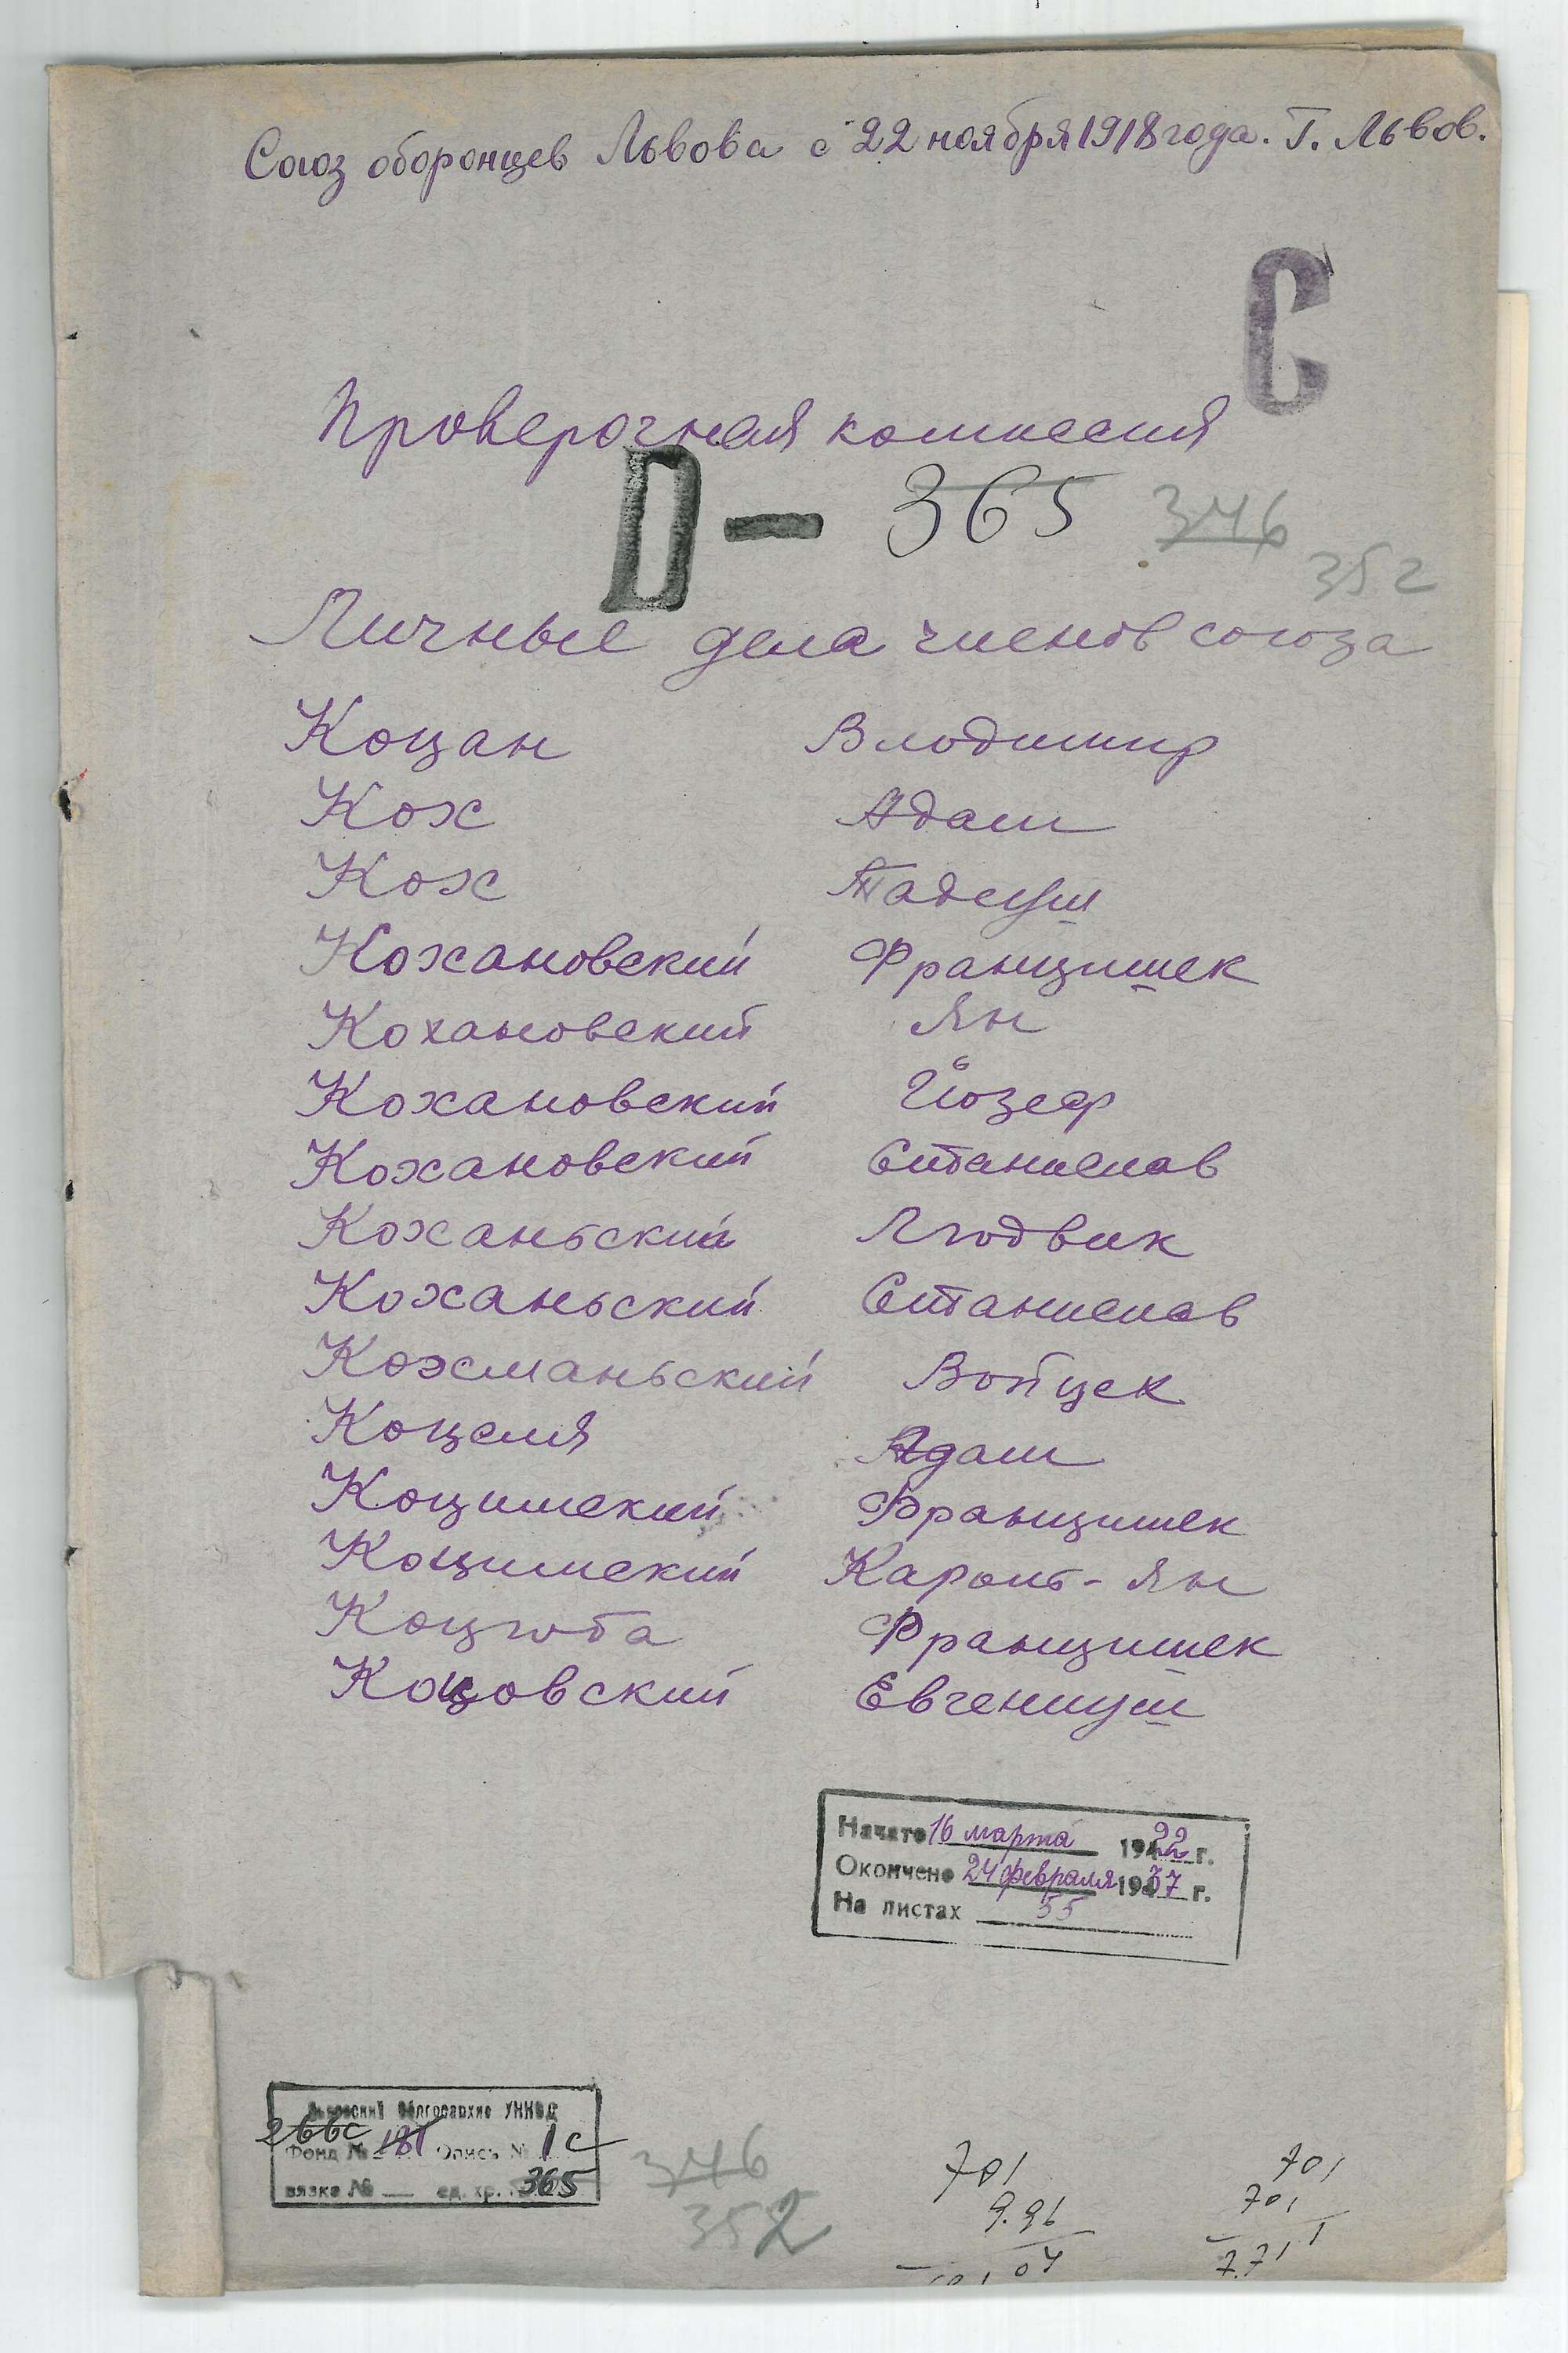 Союз оборонцев Львова с 22 ноября 1918 года. Г. Львов.
С
Проверочная комиссия
D — 365 346
352
Личные дела членов союза
Коцан Влодимир
Кох Адам
Кох Тадеуш
Кохановский Францишек
Кохановский Ян
Кохановский Йозеф
Кохановский Станислав
Коханьский Людвик
Коханьский Станислав
Кохманьский Войцек
Коцеля Адам
Коцимский Францишек
Коцимский Кароль-Ян
Коцюба Францишек
Коцовский Евгениуш
Начато 16 марта 1922 г.
Окончено 24 февраля 1937 г.
На листах 55
Львовский Облгорархив УНКВД
266с
Фонд № 181 Опись № 1с
вязка № — ед. хр. 365
346
352
701
9.96
04
701
701
7.71 1